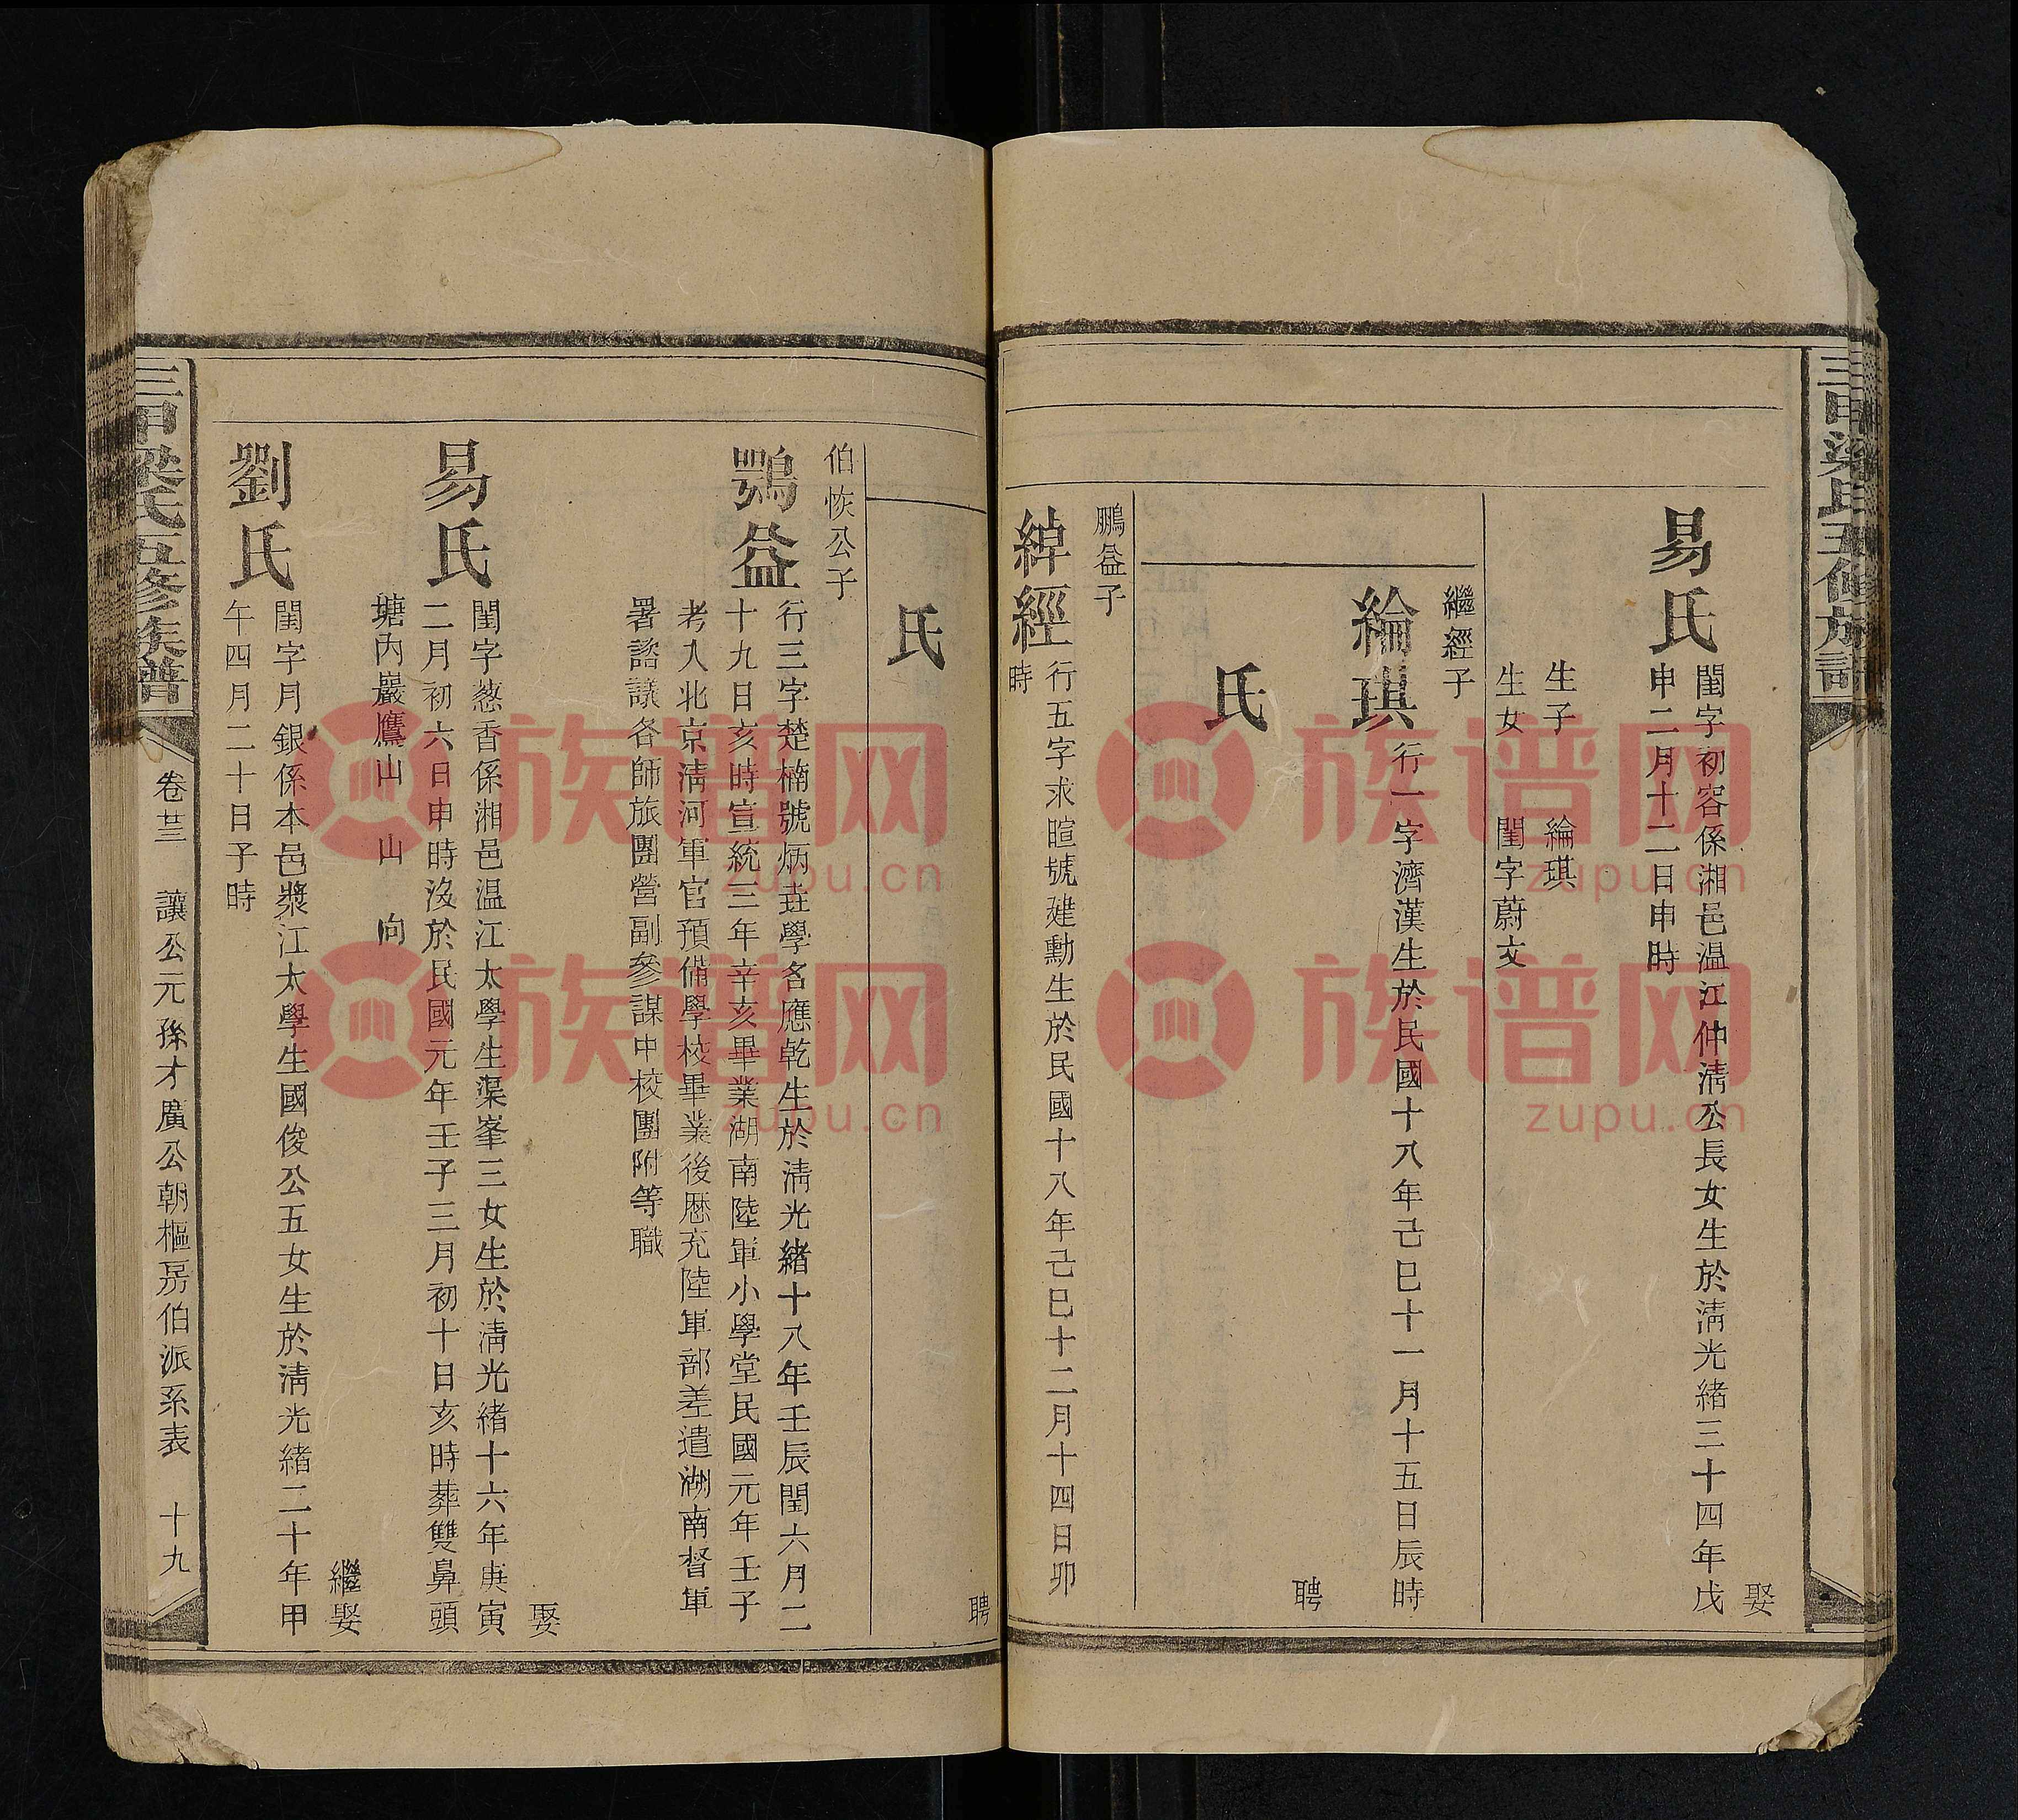 三甲梁氏五修族譜
娶
易氏
閨字初容係湘邑温江仲淸公長女生於淸光緒三十四年戊
申二月十二日申時
生子　綸琪
生女　閨字蔚文
繼經子
綸琪
行一字濟漢生於民國十八年己巳十一月十五日辰時
聘
氏
鵬益子
綽經
行五字求暄號建勳生於民國十八年己巳十二月十四日卯
時
聘
氏
伯恢公子
鶚益
行三字楚楠號炳垚學名應乾生於淸光緒十八年壬辰閏六月二
十九日亥時宣統三年辛亥畢業湖南陸軍小學堂民國元年壬子
考入北京淸河軍官預備學校畢業後歷充陸軍部差遣湖南督軍
署諮議各師旅團營副參謀中校團附等職
娶
易氏
閨字慈香係湘邑温江太學生渠峯三女生於淸光緒十六年庚寅
二月初六日申時沒於民國元年壬子三月初十日亥時葬雙鼻頭
塘內巖鷹山　山　向
繼娶
劉氏
閨字月銀係本邑漿江太學生國俊公五女生於淸光緒二十年甲
午四月二十日子時
三甲梁氏五修族譜
卷廿三　讓公元孫才廣公朝樞房伯派系表　十九
族谱网
zupu.cn
族谱网
zupu.cn
族谱网
zupu.cn
族谱网
zupu.cn